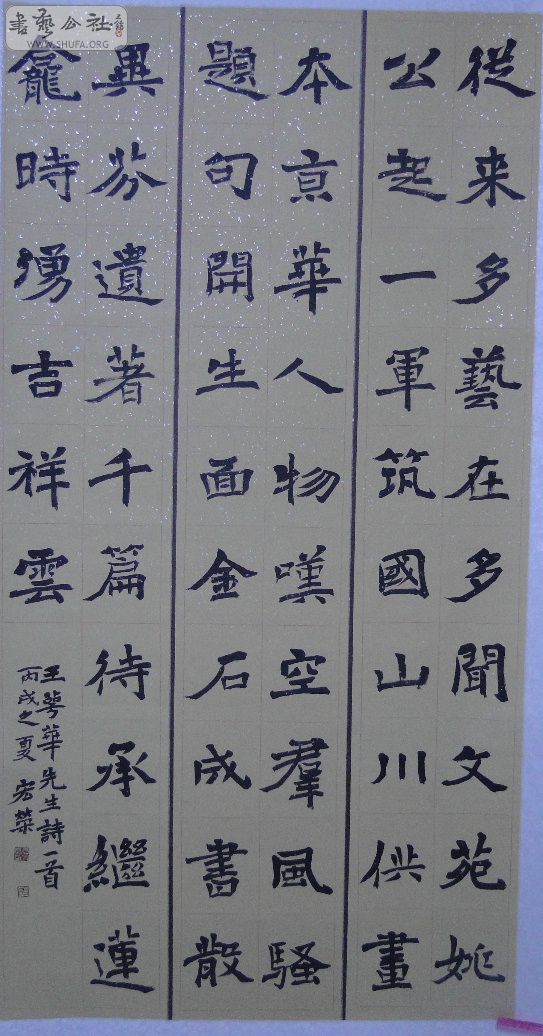 書藝公社
WWW.SHUFA.ORG
從来多藝在多聞文苑姚
公起一軍筑國山川供畫
本京華人物嘆空羣風騷
題句開生面金石成書散
異芬遺著千篇待承繼蓮
龕時湧吉祥雲
王萼華先生詩一首
丙戌之夏 宏榮